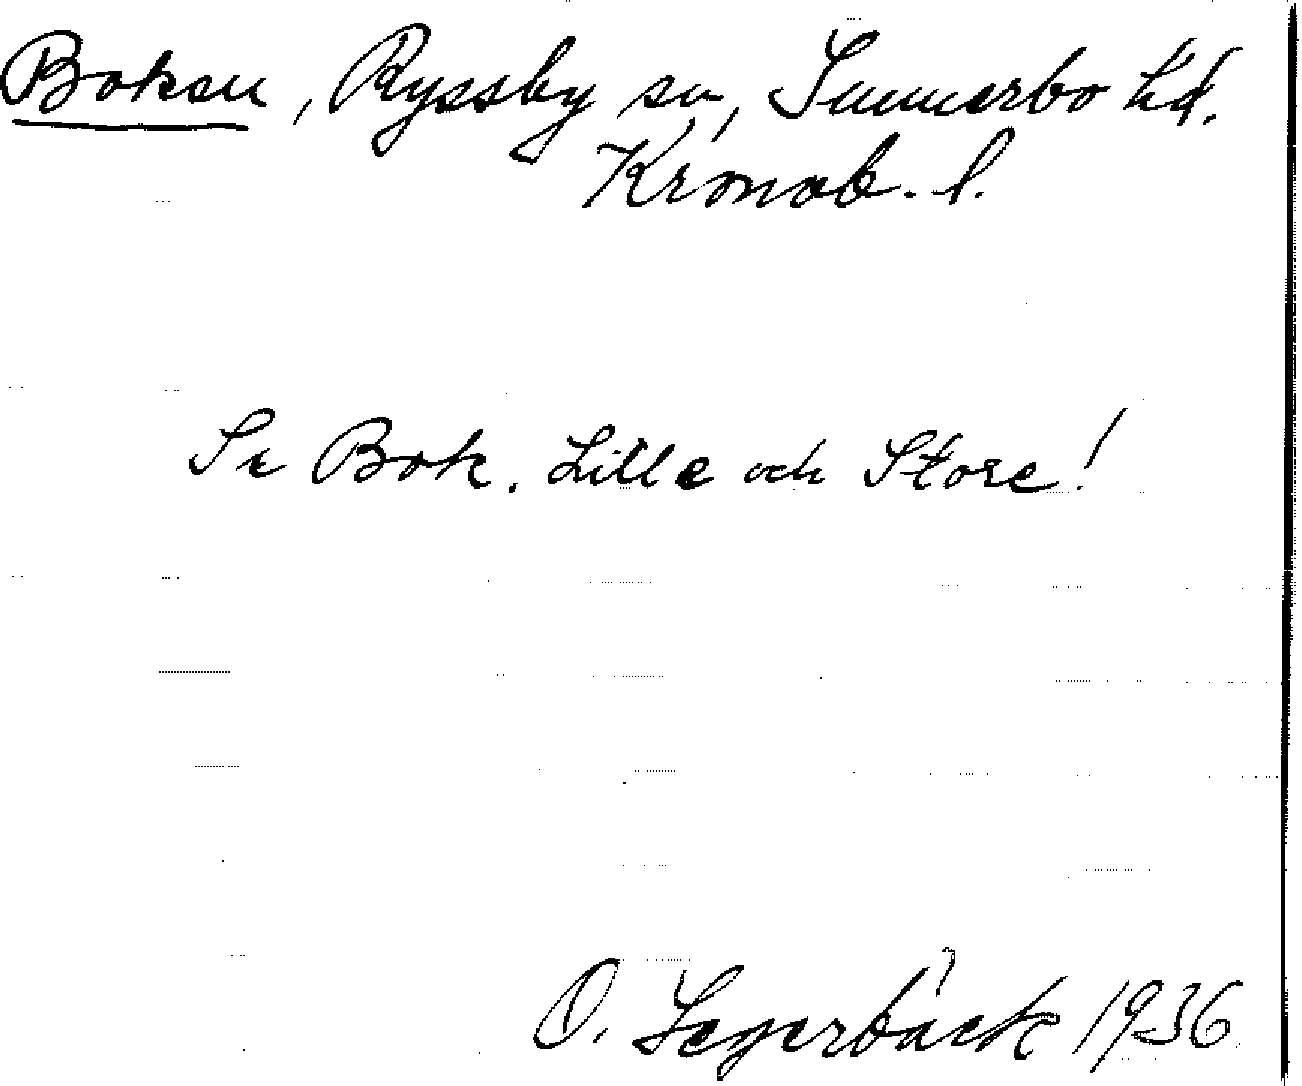 Boksu, Ryssby sn, Sunnerbo hd.
Kronob. l.
Se Bok. Lille och Store!
O. Segerbäck 1936